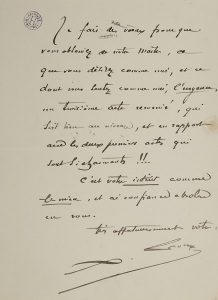 Je fais des vœux pour que
vous obteniez de votre maître, ce
que vous désirez comme moi, et ce
dont vous sentez comme moi, l'urgence,
un troisième acte remanié, qui
soit bien au niveau, et en rapport
avec les deux premiers actes qui
sont si charmants !!!
C'est votre intérêt comme
le mien, et ai confiance absolue
en vous.
très affectueusement votre